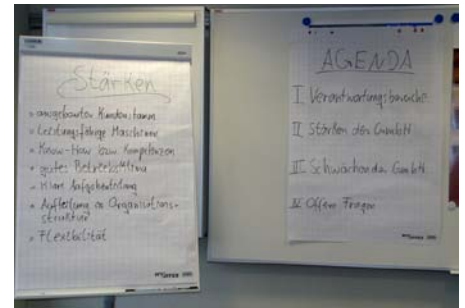 Stärken
» ausgebauter Kundenstamm
» Leistungsfähige Maschinen
» Know-How bzw. Kompetenzen
» gutes Betriebsklima
» Klare Aufgabenteilung
» Aufteilung Organisations-
struktur
» Flexibilität
AGENDA
I. Verantwortungsbereiche
II. Stärken der GmbH
III. Schwächen der GmbH
IV. Offene Fragen